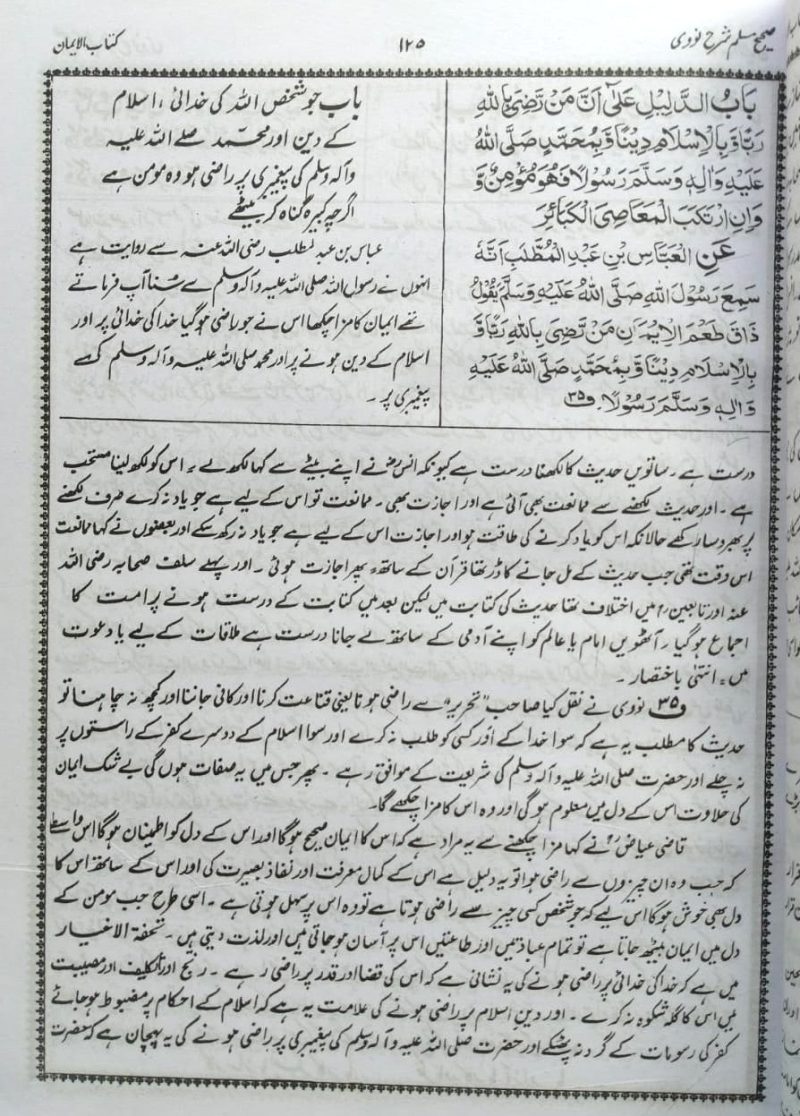 صحیح مسلم شرح نووی
۱۲۵
کتاب الایمان
بَابُ الدَّلِيْلِ عَلٰى اَنَّ مَنْ رَّضِىَ بِاللهِ
رَبًّا وَّ بِالْاِسْلَامِ دِيْنًا وَّ بِمُحَمَّدٍ صَلَّى اللهُ
عَلَيْهِ وَاٰلِهٖ وَسَلَّمَ رَسُوْلًا فَهُوَ مُؤْمِنٌ وَّ
وَاِنِ ارْتَكَبَ الْمَعَاصِىَ الْكَبَائِرَ
عَنِ الْعَبَّاسِ بْنِ عَبْدِ الْمُطَّلِبِ اَنَّهٗ
سَمِعَ رَسُوْلَ اللهِ صَلَّى اللهُ عَلَيْهِ وَسَلَّمَ يَقُوْلُ
ذَاقَ طَعْمَ الْاِيْمَانِ مَنْ رَّضِىَ بِاللهِ رَبًّا وَّ
بِالْاِسْلَامِ دِيْنًا وَّ بِمُحَمَّدٍ صَلَّى اللهُ عَلَيْهِ
وَاٰلِهٖ وَسَلَّمَ رَسُوْلًا ۔ ف۳۵
باب جو شخص اللہ کی خدائی ، اسلام
کے دین اور محمّد صلے اللہ علیہ
وآلہ وسلم کی پیغمبری پر راضی ہو وہ مومن ہے
اگرچہ کبیرہ گناہ کر بیٹھے
عباس بن عبد لمطلب رضی اللہ عنہ سے روایت ہے
انہوں نے رسول اللہ صلی اللہ علیہ وآلہ وسلم سے سُنا آپ فرماتے
تھے ایمان کا مزا چکھا اس نے جو راضی ہو گیا خدا کی خدائی پر اور
اسلام کے دین ہونے پر اور محمد صلی اللہ علیہ وآلہ وسلم کے
پیغمبری پر ۔
درست ہے ۔ ساتویں حدیث کا لکھنا درست ہے کیونکہ انسؓ نے اپنے بیٹے سے کہا لکھ لے ۔ اس کو لکھ لینا مستحب
ہے ۔ اور حدیث لکھنے سے ممانعت بھی آئی ہے اور اجازت بھی ۔ ممانعت تو اس کے لیے ہے جو یاد نہ کرے صرف لکھنے
پر بھروسا رکھے حالانکہ اس کو یاد کرنے کی طاقت ہو اور اجازت اس کے لیے ہے جو یاد نہ رکھ سکے اور بعضوں نے کہا ممانعت
اس وقت تھی جب حدیث کے مل جانے کا ڈر تھا قرآن کے ساتھ ، پھر اجازت ہوئی ۔ اور پہلے سلف صحابہ رضی اللہ
عنہ اور تابعینؒ میں اختلاف تھا حدیث کی کتابت میں لیکن بعد میں کتابت کے درست ہونے پر امت کا
اجماع ہو گیا ۔ آٹھویں امام یا عالم کو اپنے آدمی کے ساتھ لے جانا درست ہے ملاقات کے لیے یا دعوت
میں ، انتہٰی باختصار ۔
ف۳۵ نووی نے نقل کیا صاحب "تحریر" سے راضی ہونا یعنی قناعت کرنا اور کافی جاننا اور کچھ نہ چاہنا تو
حدیث کا مطلب یہ ہے کہ سوا خدا کے اور کسی کو طلب نہ کرے اور سوا اسلام کے دوسرے کفر کے راستوں پر
نہ چلے اور حضرت صلی اللہ علیہ وآلہ وسلم کی شریعت کے موافق رہے ۔ پھر جس میں یہ صفات ہوں گی بے شک ایمان
کی حلاوت اس کے دل میں معلوم ہوگی اور وہ اس کا مزا چکھے گا ۔
قاضی عیاضؒ نے کہا مزا چکھنے سے یہ مراد ہے کہ اس کا ایمان صحیح ہوگا اور اس کے دل کو اطمینان ہوگا اس واسطے
کہ جب وہ ان چیزوں سے راضی ہوا تو یہ دلیل ہے اس کے کمال معرفت اور نفاذ بصیرت کی اور اس کے ساتھ اس کا
دل بھی خوش ہوگا اس لیے کہ جو شخص کسی چیز سے راضی ہوتا ہے تو وہ اس پر سہل ہوتی ہے ۔ اسی طرح جب مومن کے
دل میں ایمان بیٹھ جاتا ہے تو تمام عبادتیں اور طاعتیں اس پر آسان ہو جاتی ہیں اور لذت دیتی ہیں ۔ تحفۃ الاخیار
میں ہے کہ خدا کی خدائی پر راضی ہونے کی یہ نشانی ہے کہ اس کی قضا اور قدر پر راضی رہے ۔ رنج اور تکلیف اور مصیبت
میں اس کا گلہ شکوہ نہ کرے ۔ اور دینِ اسلام پر راضی ہونے کی علامت یہ ہے کہ اسلام کے احکام پر مضبوط ہو جائے
کفر کی رسومات کے گرد نہ پھٹکے اور حضرت صلی اللہ علیہ وآلہ وسلم کی پیغمبری پر راضی ہونے کی یہ پہچان ہے کہ حضرت